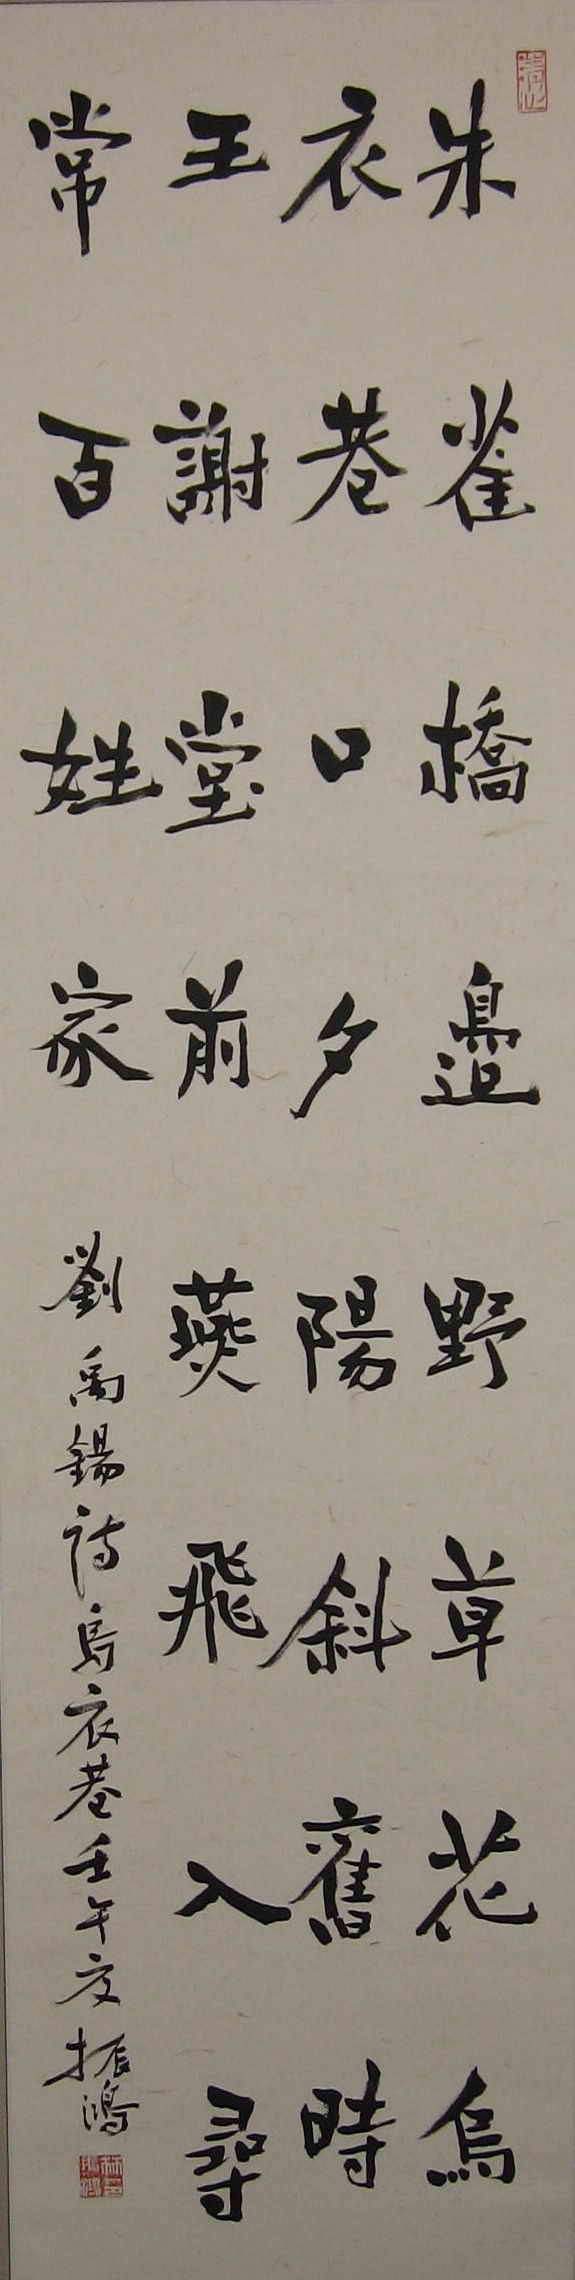 朱雀橋邉野草花烏
衣巷口夕陽斜舊時
王謝堂前燕飛入尋
常百姓家
劉禹錫詩烏衣巷壬午夏振鴻